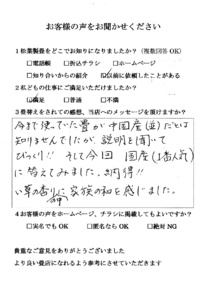 お客様の声をお聞かせください
1松葉製畳をどこでお知りになりましたか？（複数回答OK）
□電話帳　□折込チラシ　□ホームページ
□知り合いからの紹介　☑以前に依頼したことがある
2私どもの仕事にご満足いただけましたか？
☑満足　□普通　□不満
3畳替えをされての感想、当店へのメッセージを頂けますか？
今まで使っていた畳が中国産(並)だとは
知りませんでしたが、説明を聞いて
びっくり!! そして今回 国産(1番人気)
に替えてみました。納得!!
い草の香りに家族の和を感じました。
4お客様の声をホームページ、チラシに掲載してもよいですか？
□実名でもOK　□匿名ならOK　□絶対NG
貴重なご意見をありがとうございました
より良い畳店になれるよう参考にさせていただきます